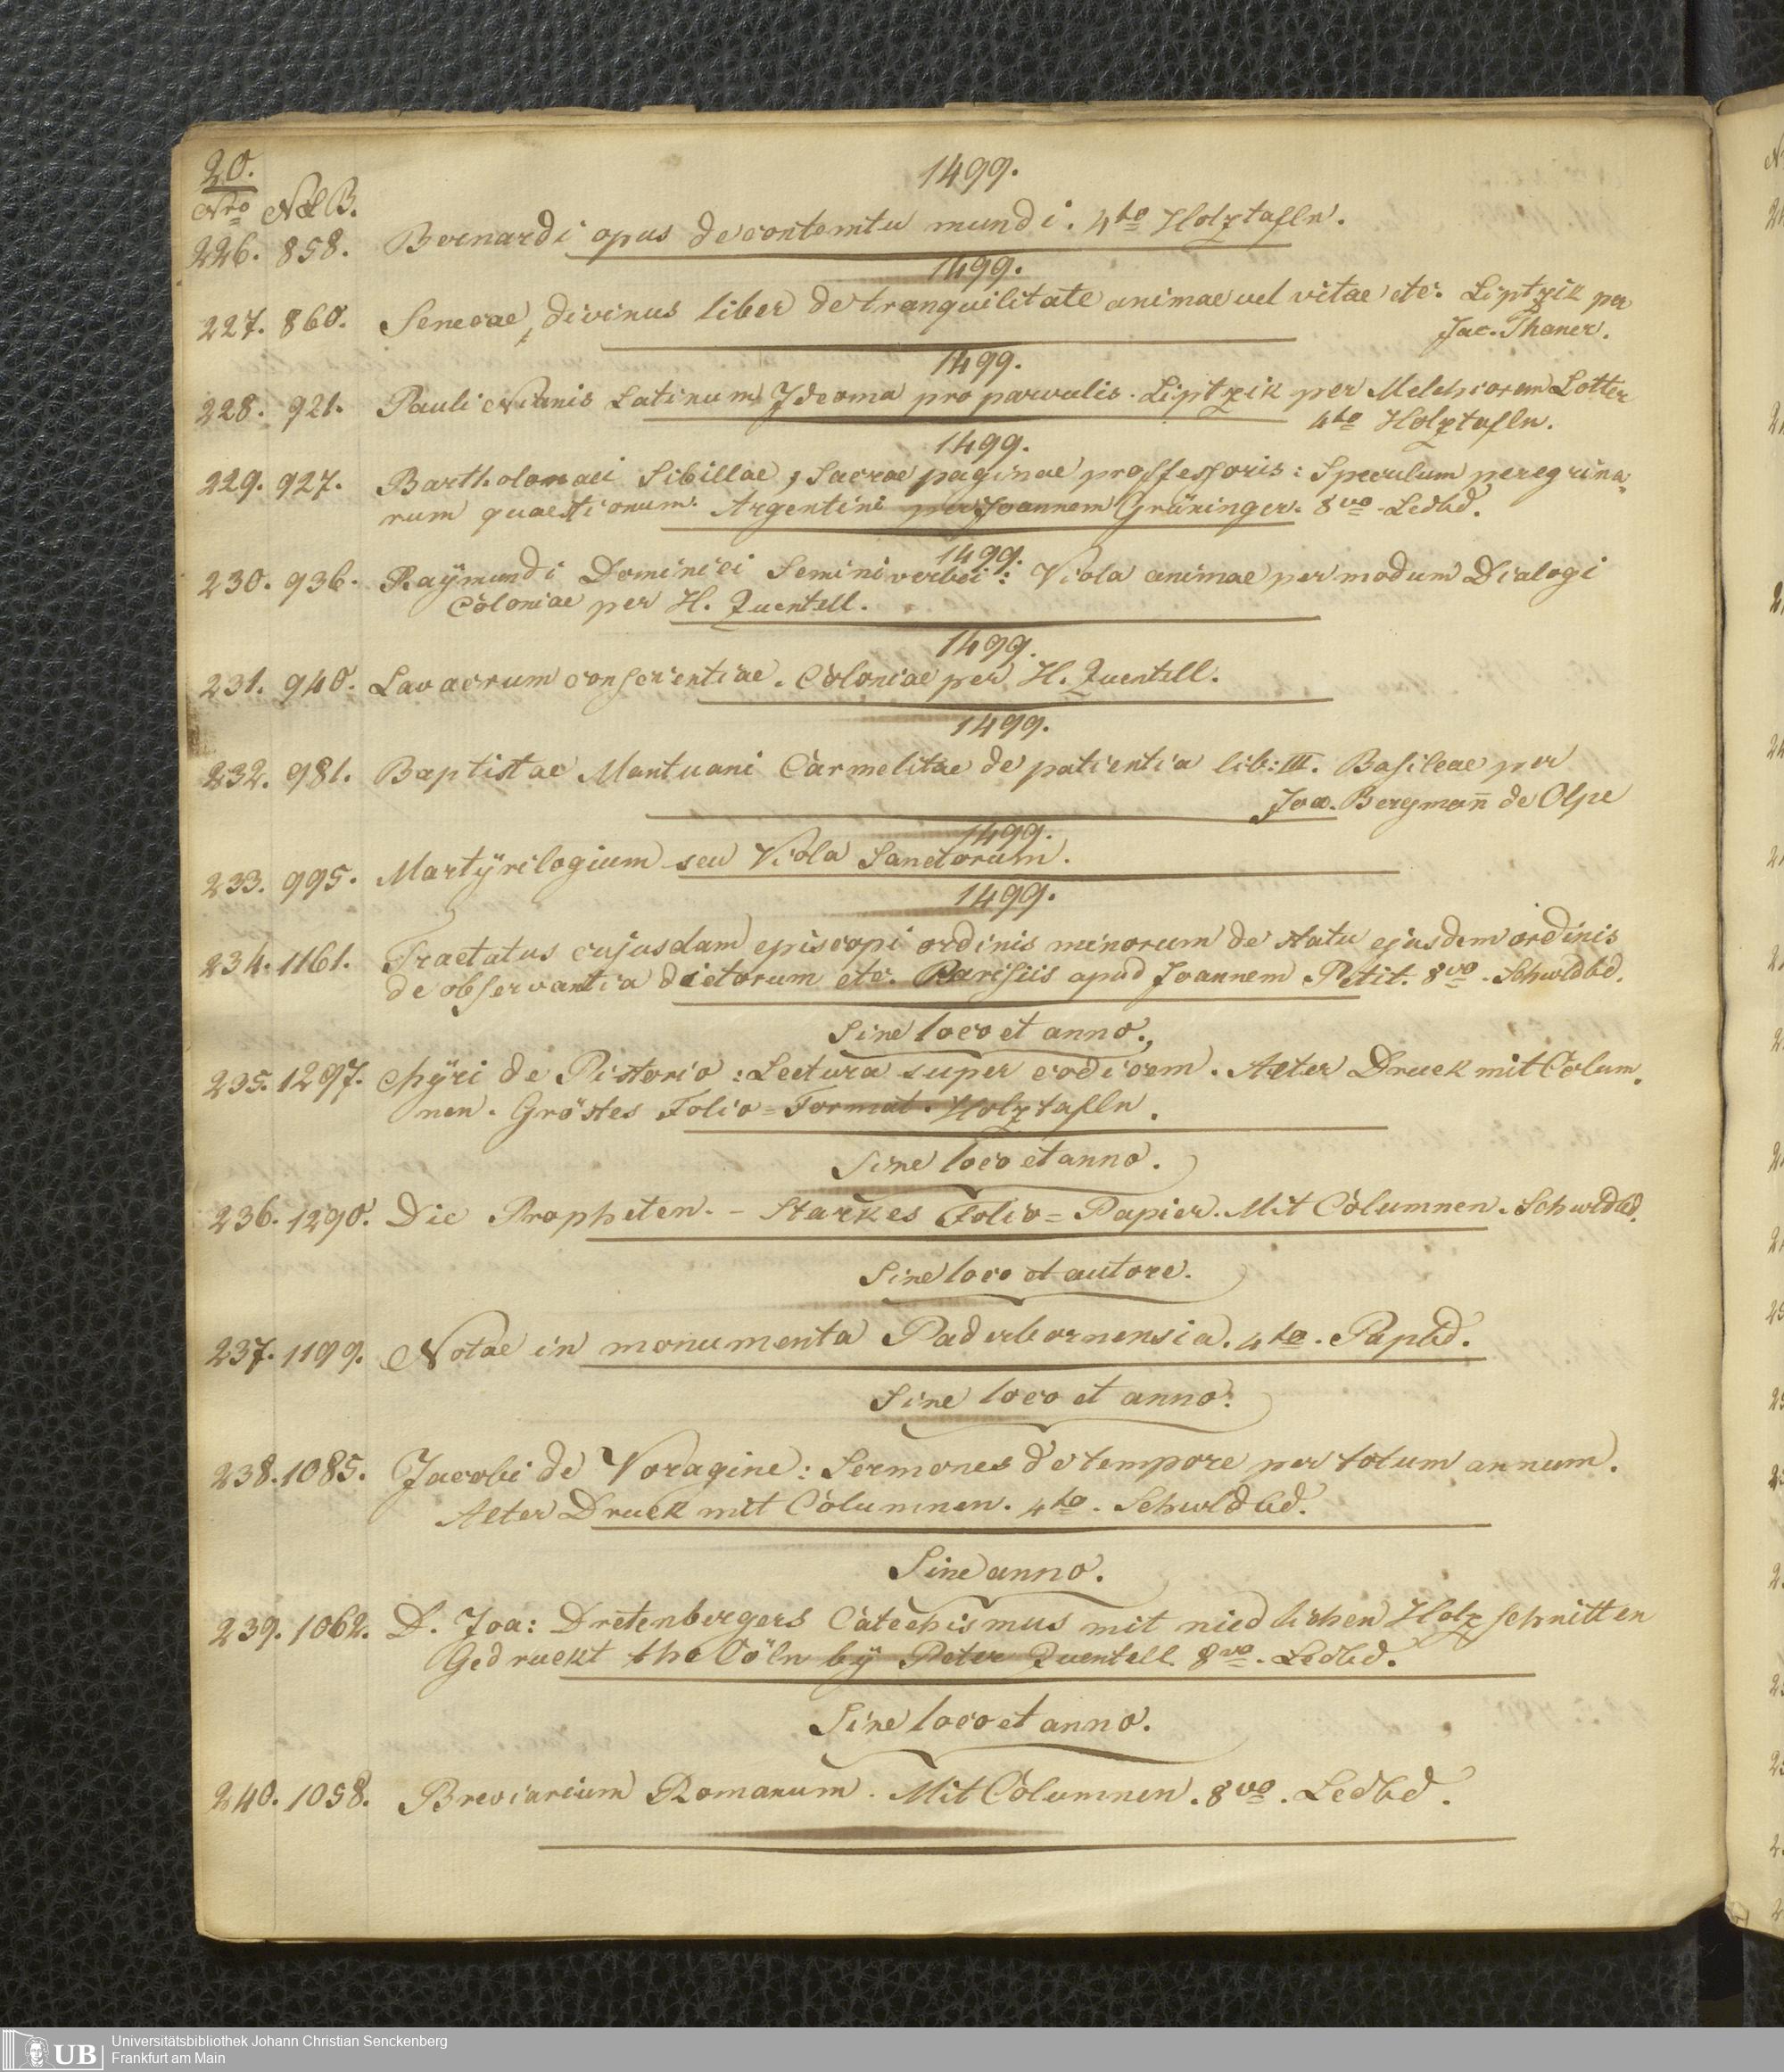 20.
1499.
Nro N. B.
226. 858. Bernardi opus de contemtu mundi. 4to Holztafln.
1499.
227. 860. Senecae, divinus liber de tranquilitate animae vel vitae etc. Liptzik per
Jac. Thaner.
1499.
228. 921. Pauli Nianis Latinum Ydeoma pro parvulis. Liptzik per Melchiorem Lotter
4to Holztafln.
1499.
229. 927. Bartholomaei Sibillae, Sacrae paginae proffessoris: Speculum peregrina„
rum quaestionum. Argentini per Joannem Grüninger. 8vo. Ledbd.
1499.
230. 936. Raÿmundi Dominici Seminiverbii: Viola animae per modum Dialogi
Coloniae per H. Quentell.
1499.
231. 940. Lavacrum conscientiae. Coloniae per H. Quentell.
1499.
232. 981. Baptistae Mantuani Carmelitae de patientia lib: III. Basileae per
Joa. Bergman̄ de Olpe
1499.
233. 995. Martÿrilogium seu Viola Sanctorum.
1499.
234. 1161. Tractatus cujusdam episcopi ordinis minorum de statu ejusdem ordinis
de observantia dictorum etc. Parisiis apud Joannem Petit. 8vo. Schwldbd.
Sine loco et anno.
235. 1297. Chÿri de Pistorio: Lectura super codicem. Alter Druck mit Colum„
nen. Gröstes Folio=Format. Holztafln.
Sine loco et anno.
236. 1290. Die Propheten. - Starkes Folio=Papier. Mit Columnen. Schwldbd.
Sine loco et autore.
237. 1199. Notae in monumenta Paderbornensia. 4to. Papbd.
Sine loco et anno.
238. 1085. Jacobi de Voragine: Sermones de tempore per totum annum.
Alter Druck mit Columnen. 4to. Schwldbd.
Sine anno.
239. 1062. D. Joa: Dretenbergers Catechismus mit niedlichen Holzschnitten
Gedruckt tho Cöln bÿ Peter Quentell. 8vo. Ledbd.
Sine loco et anno.
240. 1058. Breviarium Romanum. Mit Columnen. 8vo. Ledbd.
UB
Universitätsbibliothek Johann Christian Senckenberg
Frankfurt am Main